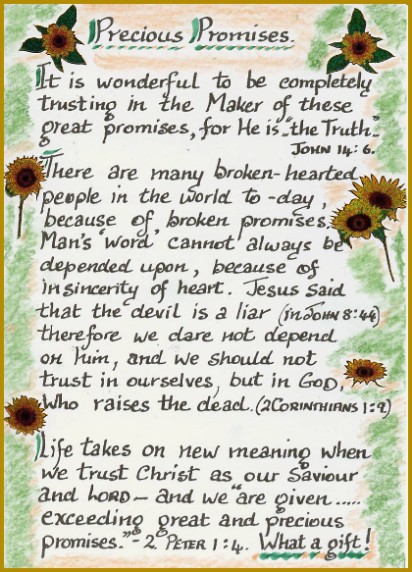 Precious Promises.
It is wonderful to be completely
trusting in the Maker of these
great promises, for He is "the Truth."
JOHN 14:6.
There are many broken-hearted
people in the world to-day,
because of broken promises,
Man's 'word' cannot always be
depended upon, because of
insincerity of heart. Jesus said
that the devil is a liar (in JOHN 8:44)
therefore we dare not depend
on him, and we should not
trust in ourselves, but in GOD,
Who raises the dead. (2 CORINTHIANS 1:9)
Life takes on new meaning when
we trust Christ as our Saviour
and LORD — and we "are given .....
exceeding great and precious
promises." - 2 PETER 1:4. What a gift!